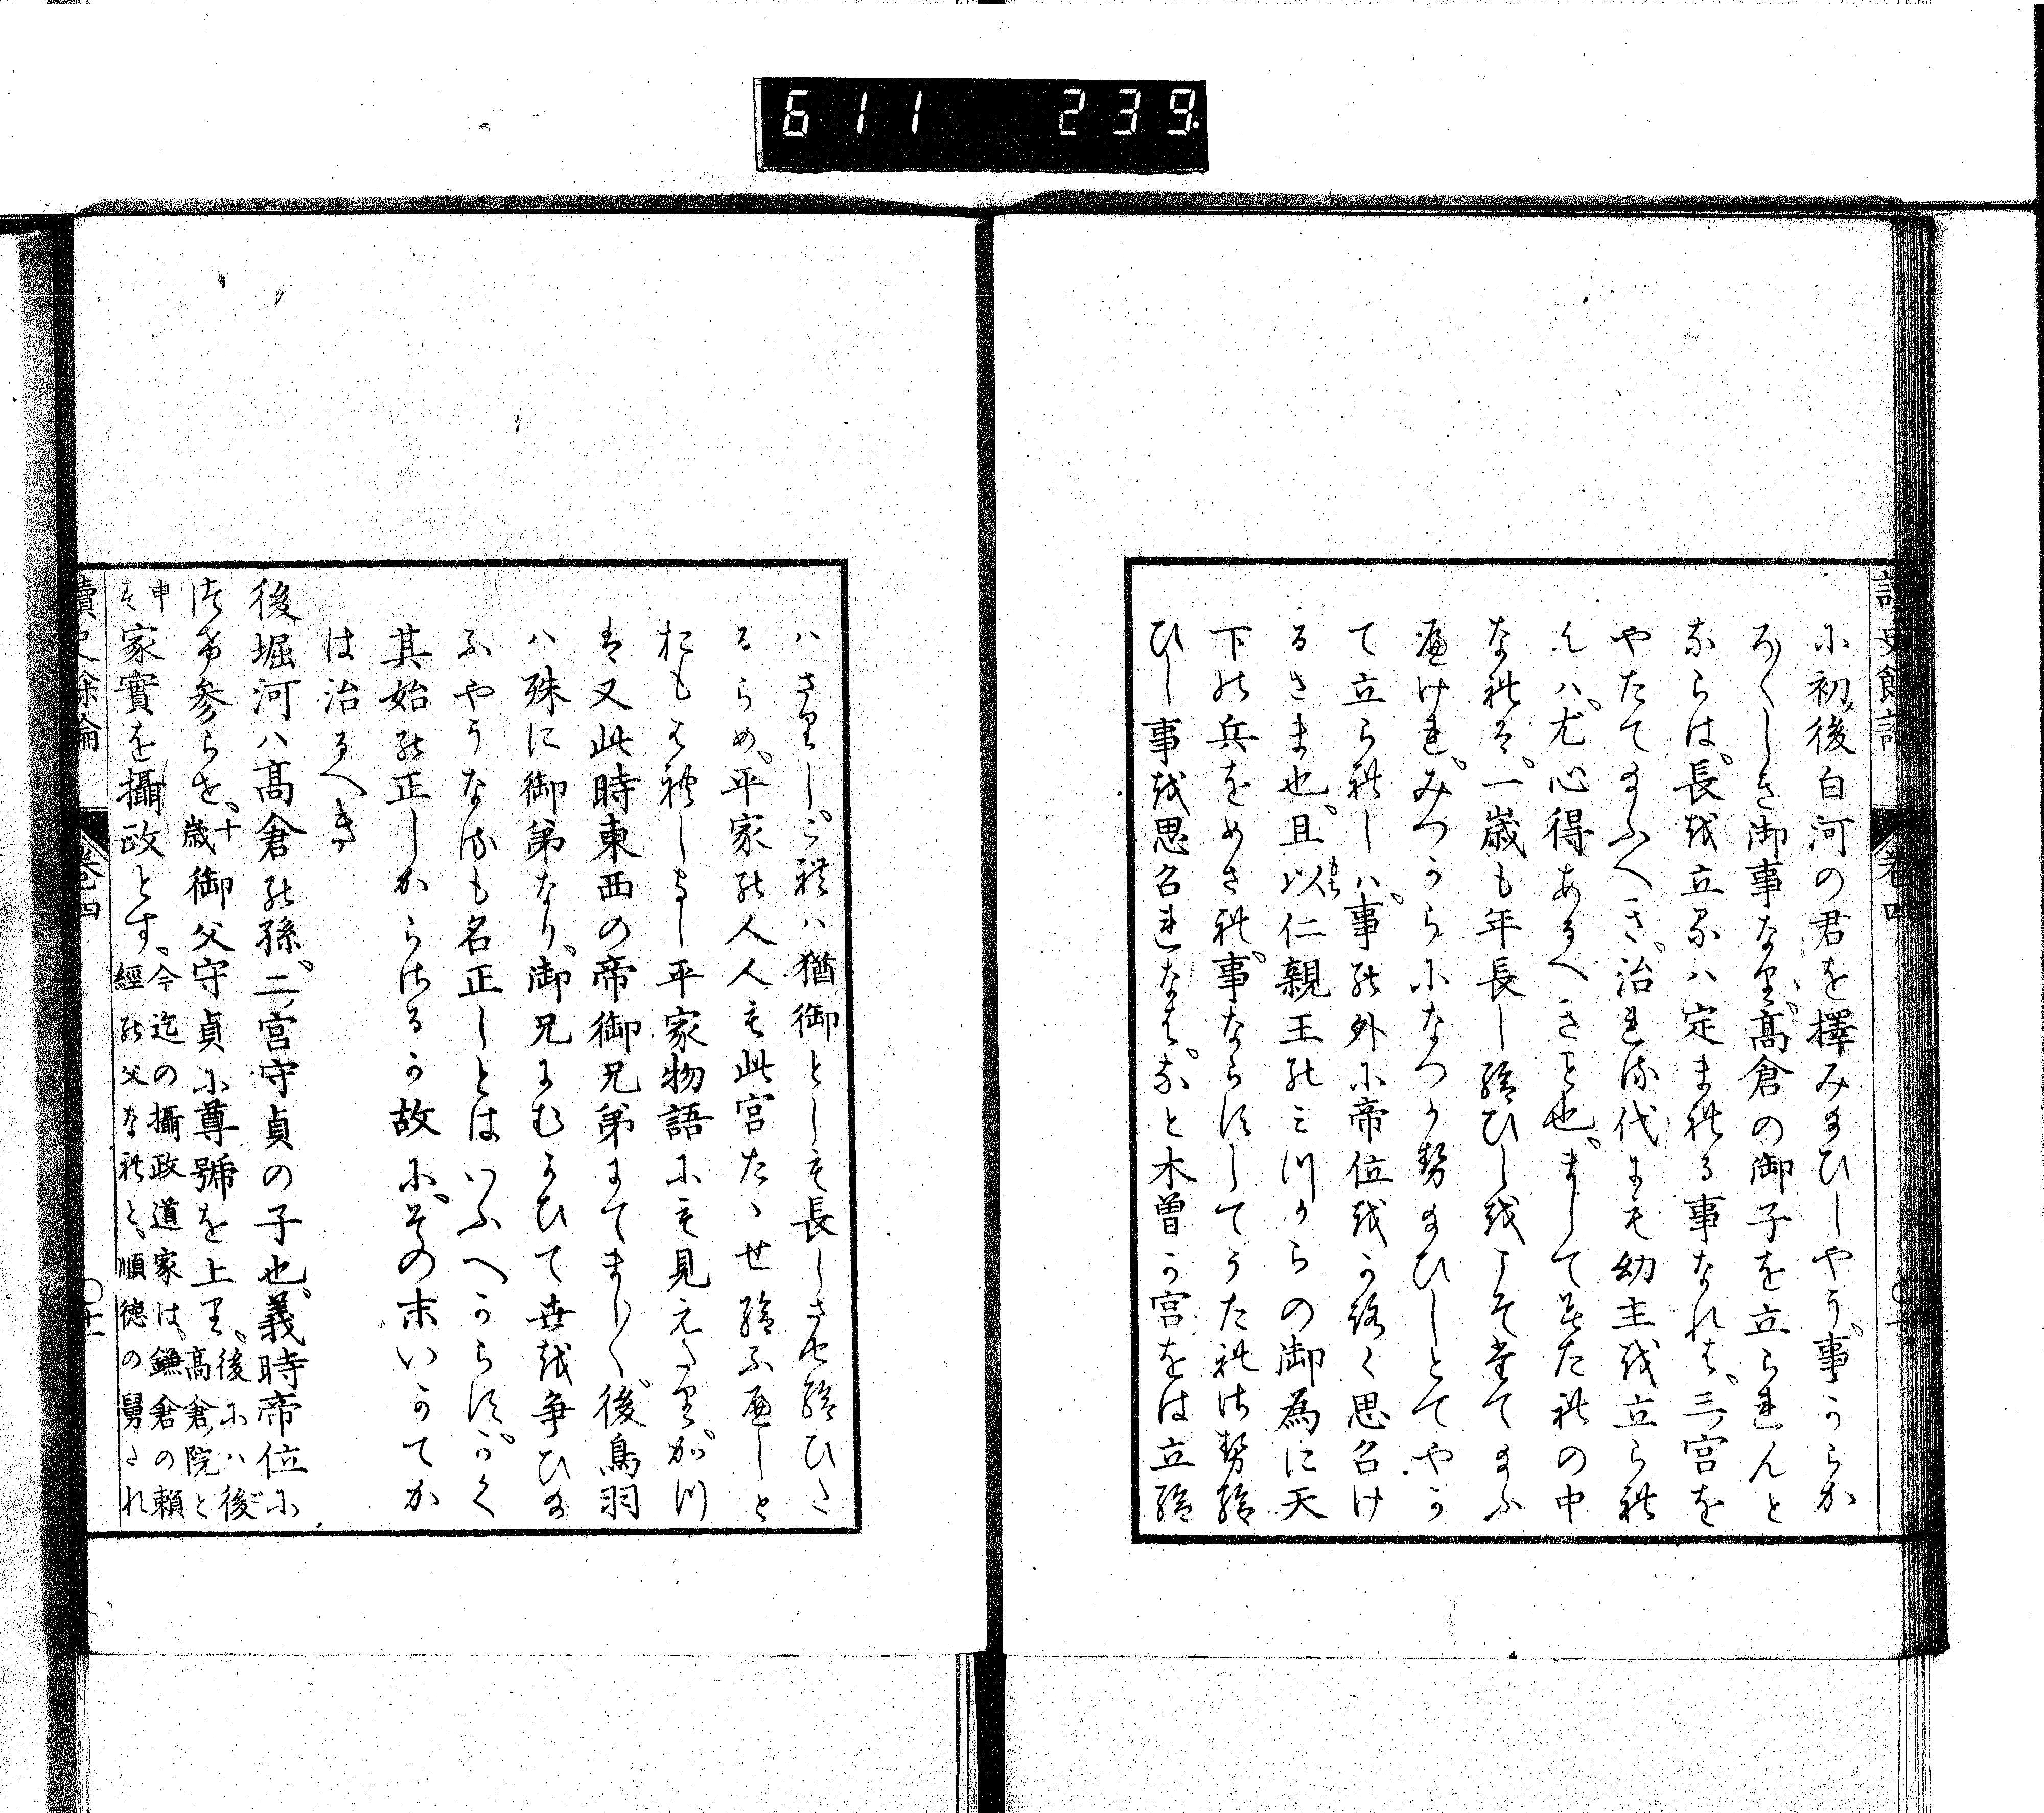 611 239.
讀史餘論 卷四
に初後白河の君を擇み給ひしやう事うらか
ろ〳〵しき御事なり高倉の御子を立られんと
ならは長を立るハ定まれる事なれは三ノ宮を
やたて給ふへき治れる代にも幼主を立られ
んハ尤心得あるへき事也ましてみたれの中
なれは一歳も年長し給ひしをこそ立て給ふ
へけれみつうらになつかせ給ひしとてやか
て立られしハ事の外に帝位をかろく思召け
るさま也且以仁親王のミつからの御為に天
下の兵をめされ事ならすしてうたれさせ給
ひし事を思召れなはなと木曽か宮をは立給
ハさりしこれハ猶御としも長しさせ給ひた
るらめ平家の人人も此宮たゝせ給ふへしと
おもはれしよし平家物語にも見えたりかつ
は又此時東西の帝御兄弟にてまし〳〵後鳥羽
ハ殊に御弟なり御兄にむかひて世を争ひ給
ふやうなるも名正しとはいふへからすかく
其始の正しからさるか故にその末いかてか
は治るへき
後堀河ハ高倉の孫二ノ宮守貞の子也義時帝位に
つけ参らせ十歳御父守貞に尊號を上り後にハ後高倉ノ院と
申す家實を攝政とす今迄の攝政道家は鎌倉の頼經の父なれと順徳の舅たれ
讀史餘論 卷四 〇十一